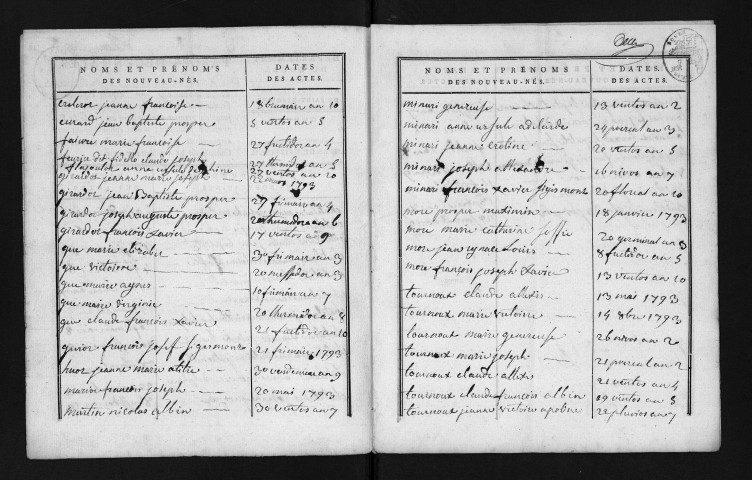 NOMS ET PRÉNOMS DES NOUVEAU-NÉS.
DATES DES ACTES.
jeanne francoise 18 brumaire an 10
curard jean baptiste prosper 5 ventos an 5
faivre marie francoise 27 fructidor an 4
fevrie dit fidelle claude joseph 27 thermidor an 5
anne ursule 27 ventos an 10
girardor jeanne marie joseph 1793
girardor jean Baptiste prosper 29 frimair an 4
girardor joseph auguste prosper 20 thermidor an 6
girardor francois Xavier 17 ventos an 9
que marie 30 frimair an 3
que victoire 20 messidor an 3
que marie agnes 10 frimair an 7
que marie virginie 20 thermidor an 8
que claude francois Xavier 21 fructidor an 10
francois josef sigismonte 21 frimair 1793
huor jeanne marie 30 vendemair an 9
francois joseph 20 mai 1793
martin nicolas albin 30 ventos an 7
NOMS ET PRÉNOMS DES NOUVEAU-NÉS.
DATES DES ACTES.
minari genereuse 13 ventos an 2
minari anne ursule adelaide 24 an 3
minari jeanne 20 ventos an 5
minari joseph allexandre 16 nivos an 7
minari francois Xavier sigismont 20 floreal an 10
more prosper maximin 18 janvier 1793
more marie catherine 20 germinal an 3
more jean ignace Louis 8 fructidor an 5
more françois joseph Xavier 13 ventos an 10
tournoux claude allexis 13 mai 1793
tournoux marie victoire 14 8bre 1793
tournoux marie genereuse 26 nivos an 2
tournoux marie joseph 21 an 2
tournoux claude allexis 21 ventos an 4
tournoux claude francois albin 19 ventos an 5
tournoux jeanne victoire 22 pluvios an 7